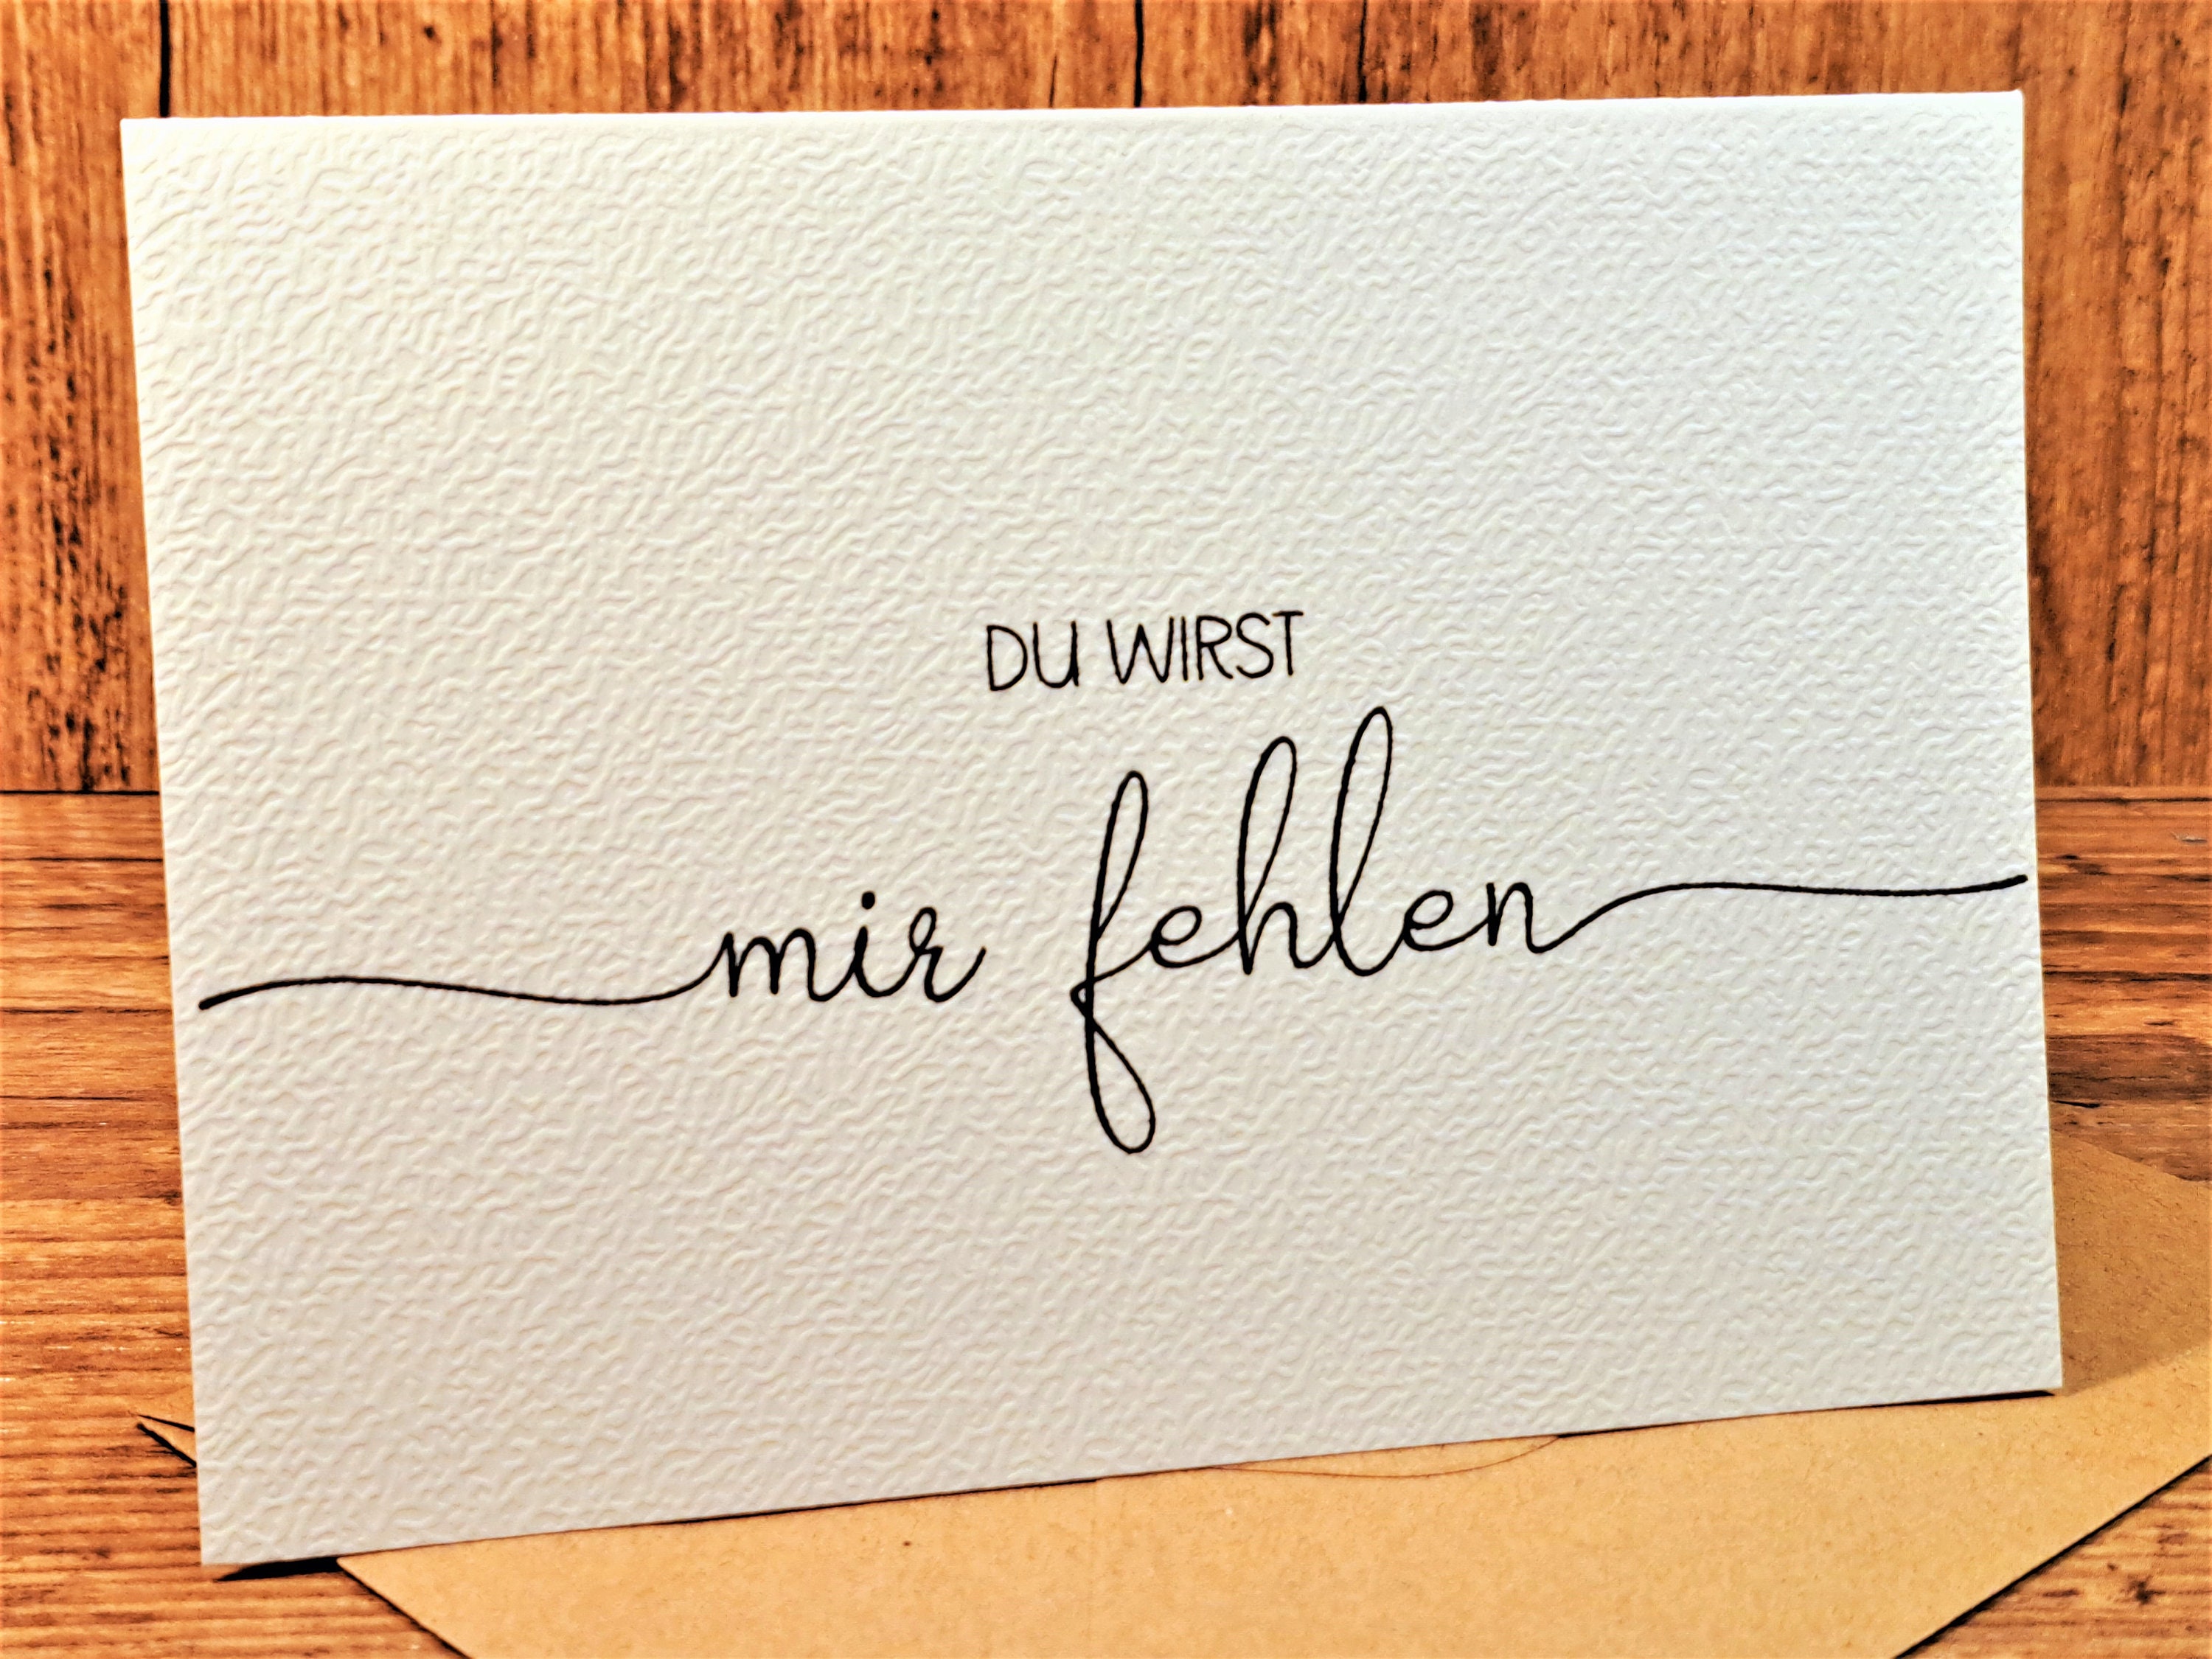 DU WIRST
mir fehlen